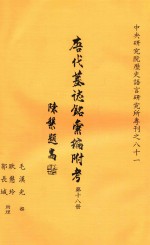 中央研究院歷史語言研究所專刊之八十一
唐代墓誌銘彙編附考
第十八冊
陳槃題耑
毛漢光 撰
耿慧玲
郭長城 助理